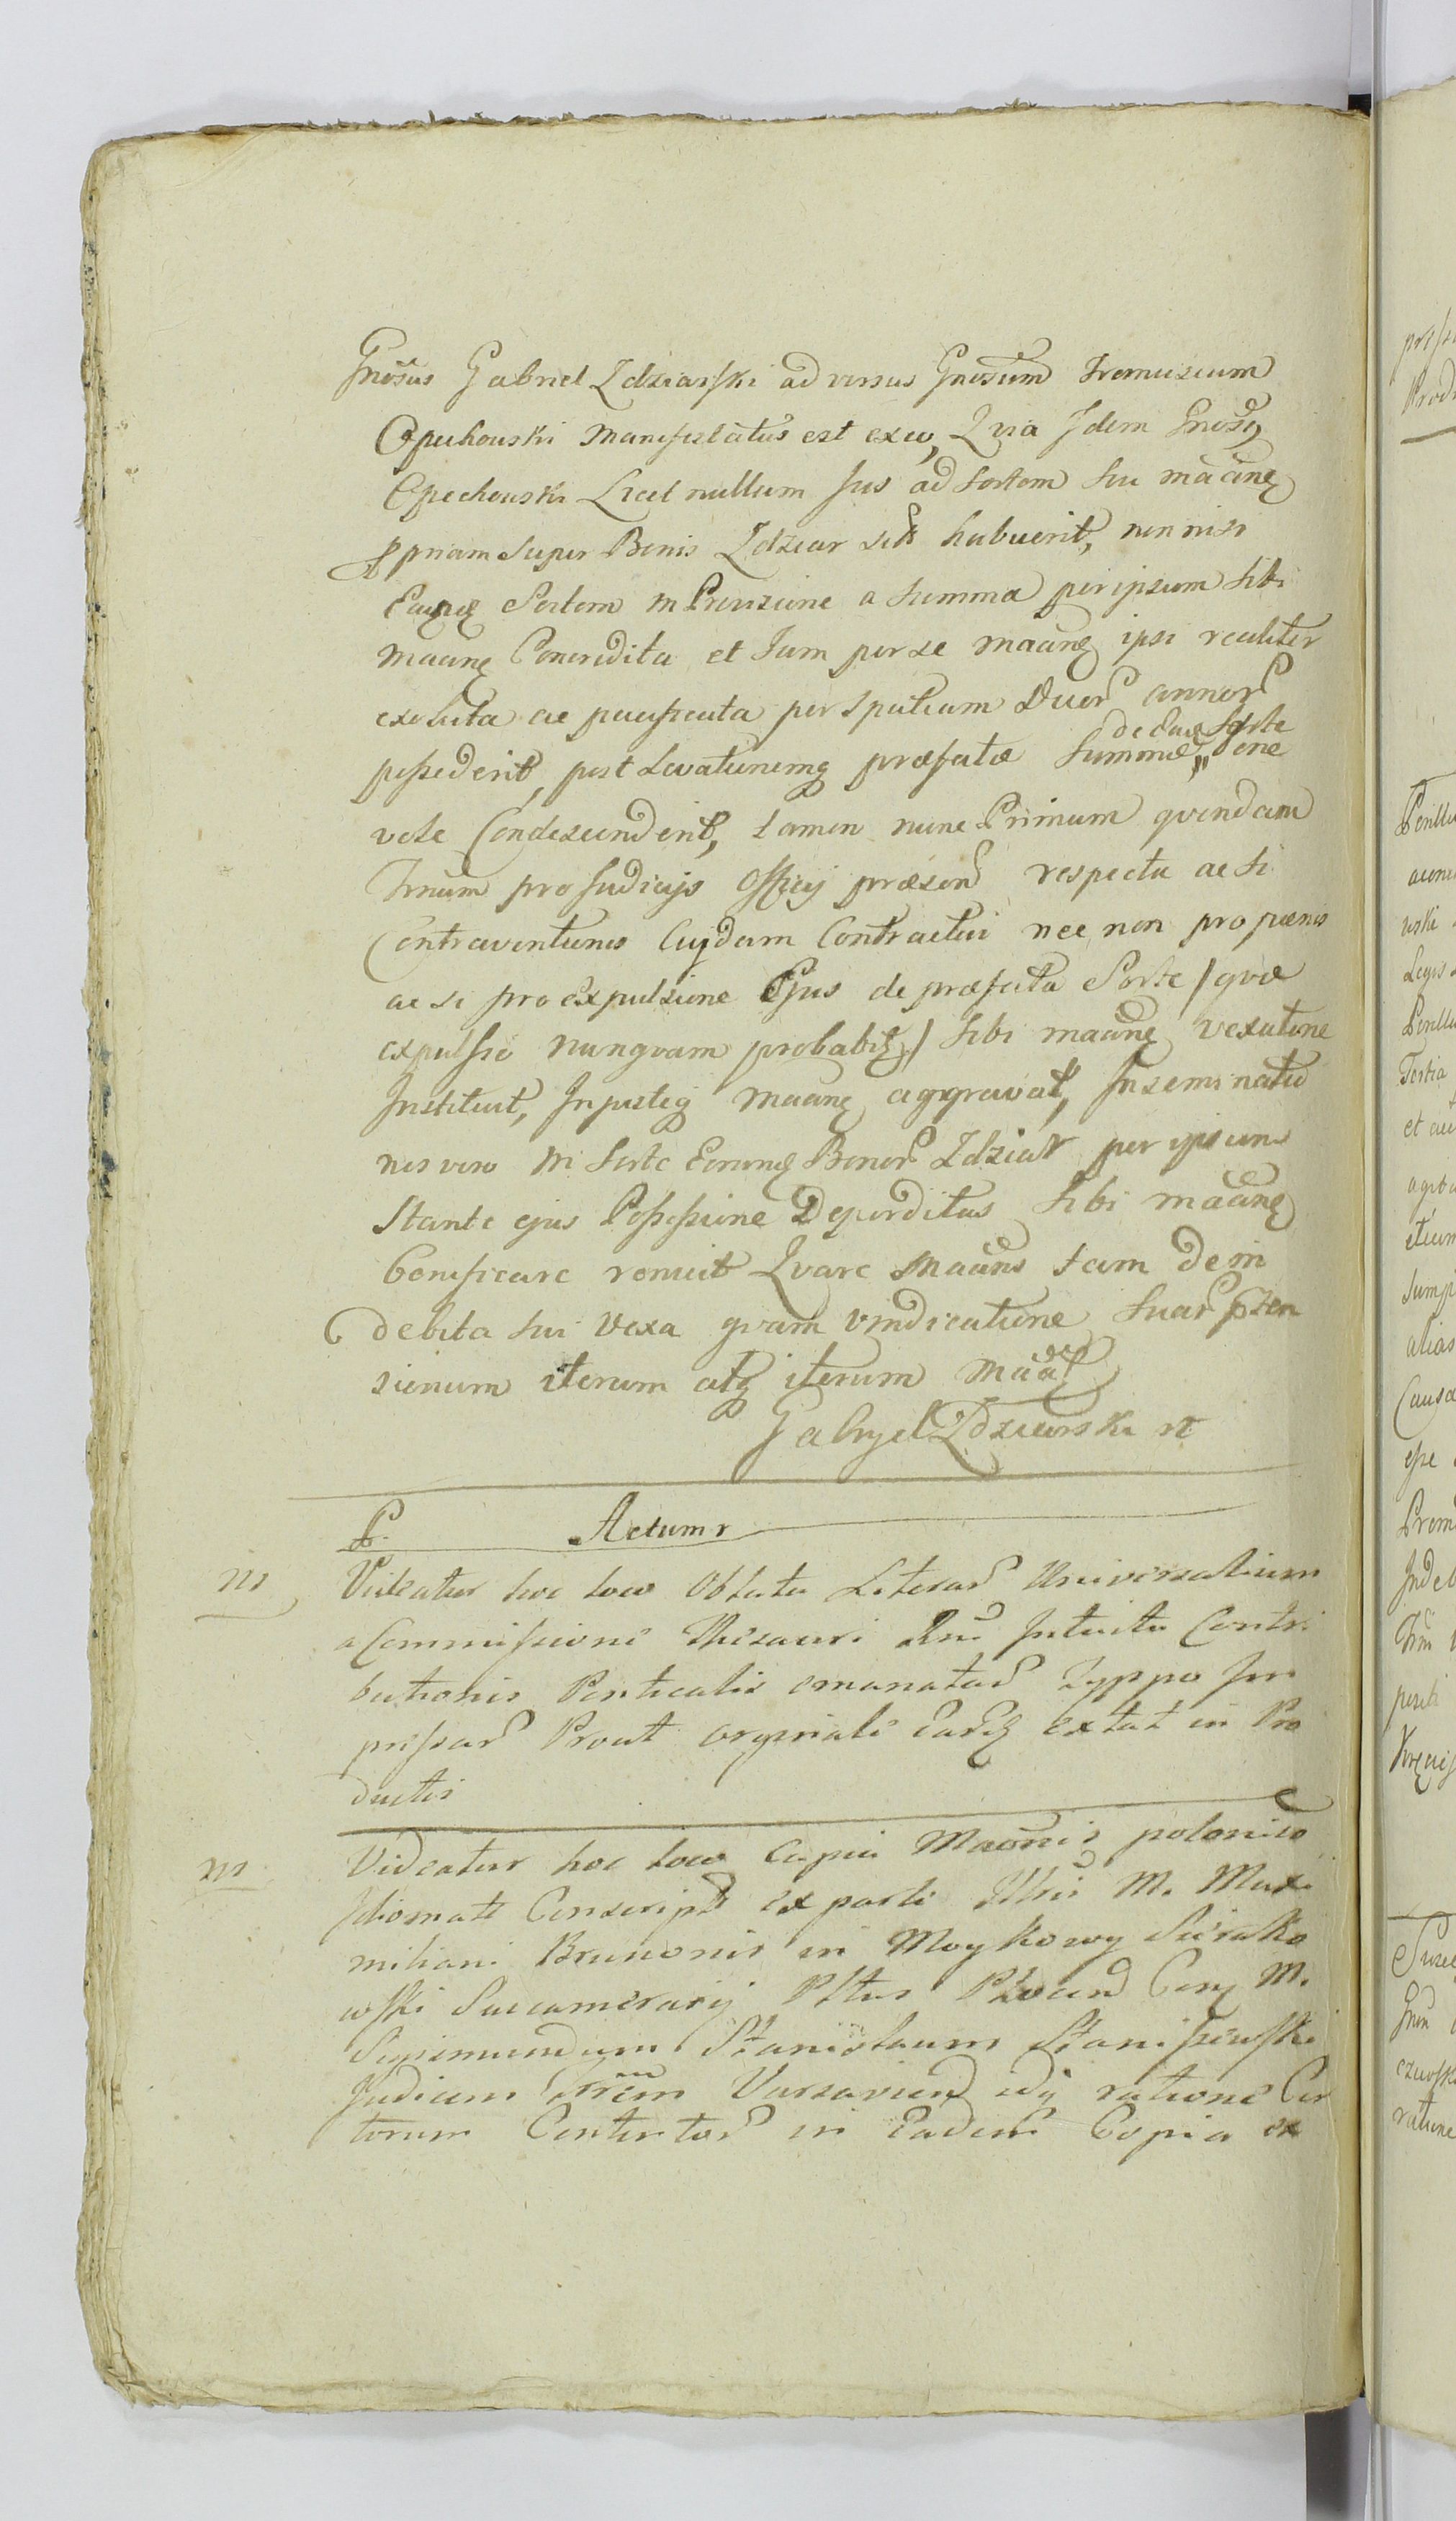 Gnosus Gabriel Zdziarski adversus Gnosum Fremuzium
Opechouski Manifestatus est ex eo, Quia Idem Gnosq
Opechouski Licet nullum Jus ad Sortem Su maane
ppriam Super Bonis Zdziar sitt habuerit, non nisi
Eamq Sortem in Provizione a Summa per ipsum sibi
maane Concredita et Jam per se maane ipsi realiter
exoluta ac pacificata per Spatium Duor annor
possederit, post Levationemq præfatæ Summæ, „ de Eaq Sorte one
vole Condescenderit, tamen nunc Primum quendam
Trnum pro Judicys Officy præsen respectu ac si
Contraventionis Cujdam Contractui nec non pro pœnis
ac si pro expulsione Ejus de præfata Sorte / quæ
expulsio nunquam probabit / Sibi maane vexatione
Instituit, Injusteq maane aggravat, Inseminatio
nes vero in Sorte Eorumq Bonor Zdziar per ipsum
Stante ejus Possessione Deperditas Sibi maane
bonificare renuit Quare Maans tam de in
debita sui vexa quam vindicatione Suar pten
sionum iterum atq iterum Maat
Gabryel Zdziarski rt
P. Actum r
ns Videatur hoc loco Oblata Literar Universalium
a Commissione Thesauri Rni Intuitu Contri
butionis Ponticalis emanatar Typpo Im
pressar Prout orginale Earq extat in Pro
ductis
ns Videatur hoc loco Copia Maonis polonico
Idiomate Conscripta ex parte Illris M. Maxi
miliani Brunonis in Moykowy Sierako
wski Succamerarij Pltus Plocen Con M.
Sigismundum Stanislaum Staniszewski
Judicem Trrem Varsavien idq ratione Cer
torum Contentor in Eadem Copia ex